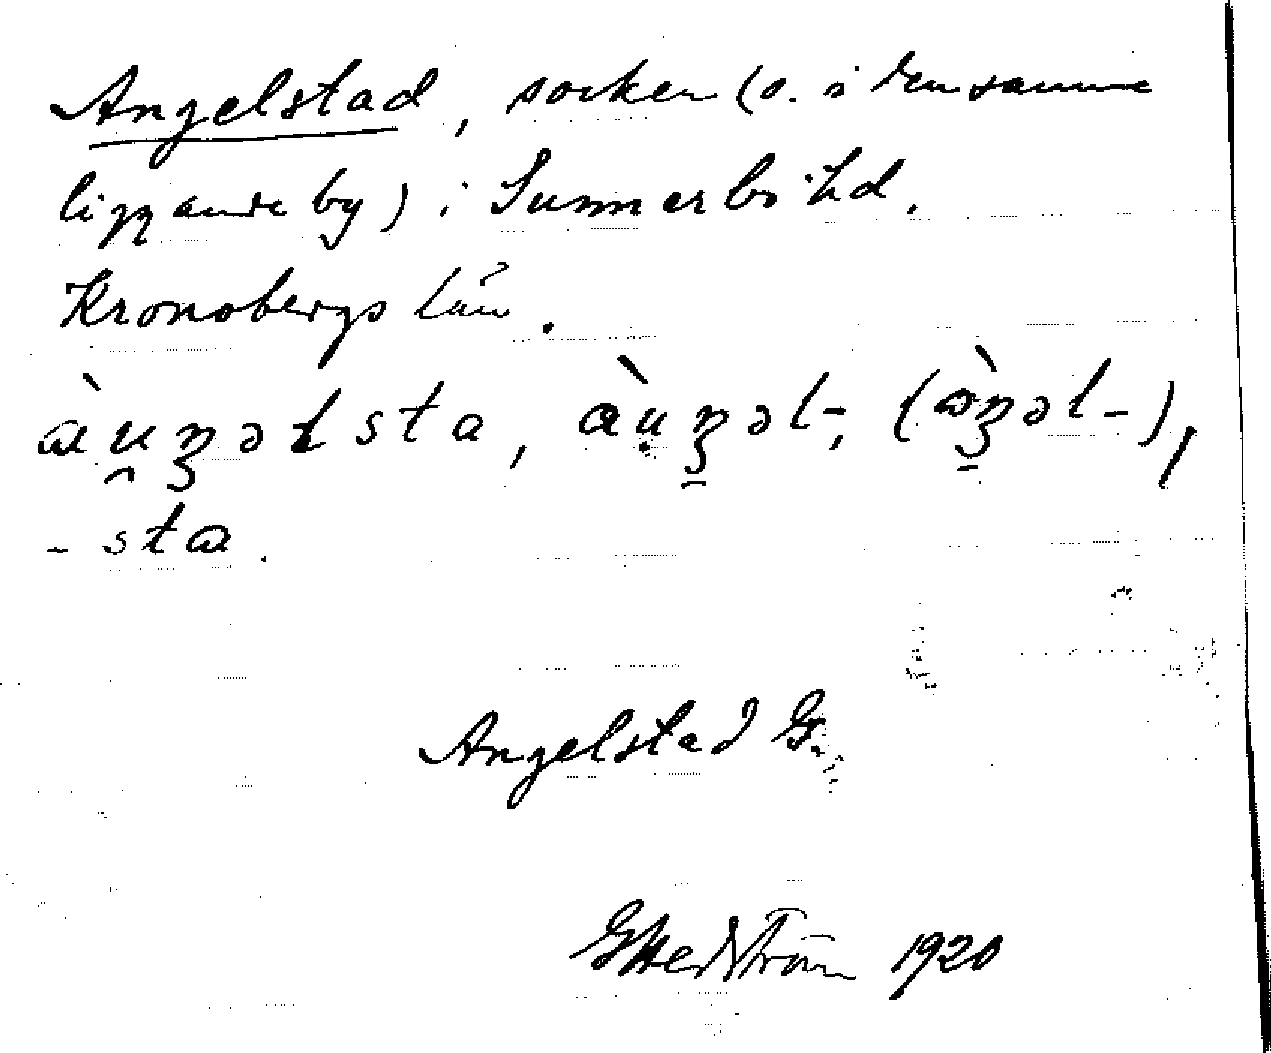 Angelstad, socken (o. i densamma
liggande by) i Sunnerbo hd.
Kronobergs län.
àu̯ŋəlsta, àu̯ŋəl-, (àŋəl-),
-sta.
Angelstad G.
G Hedström 1920